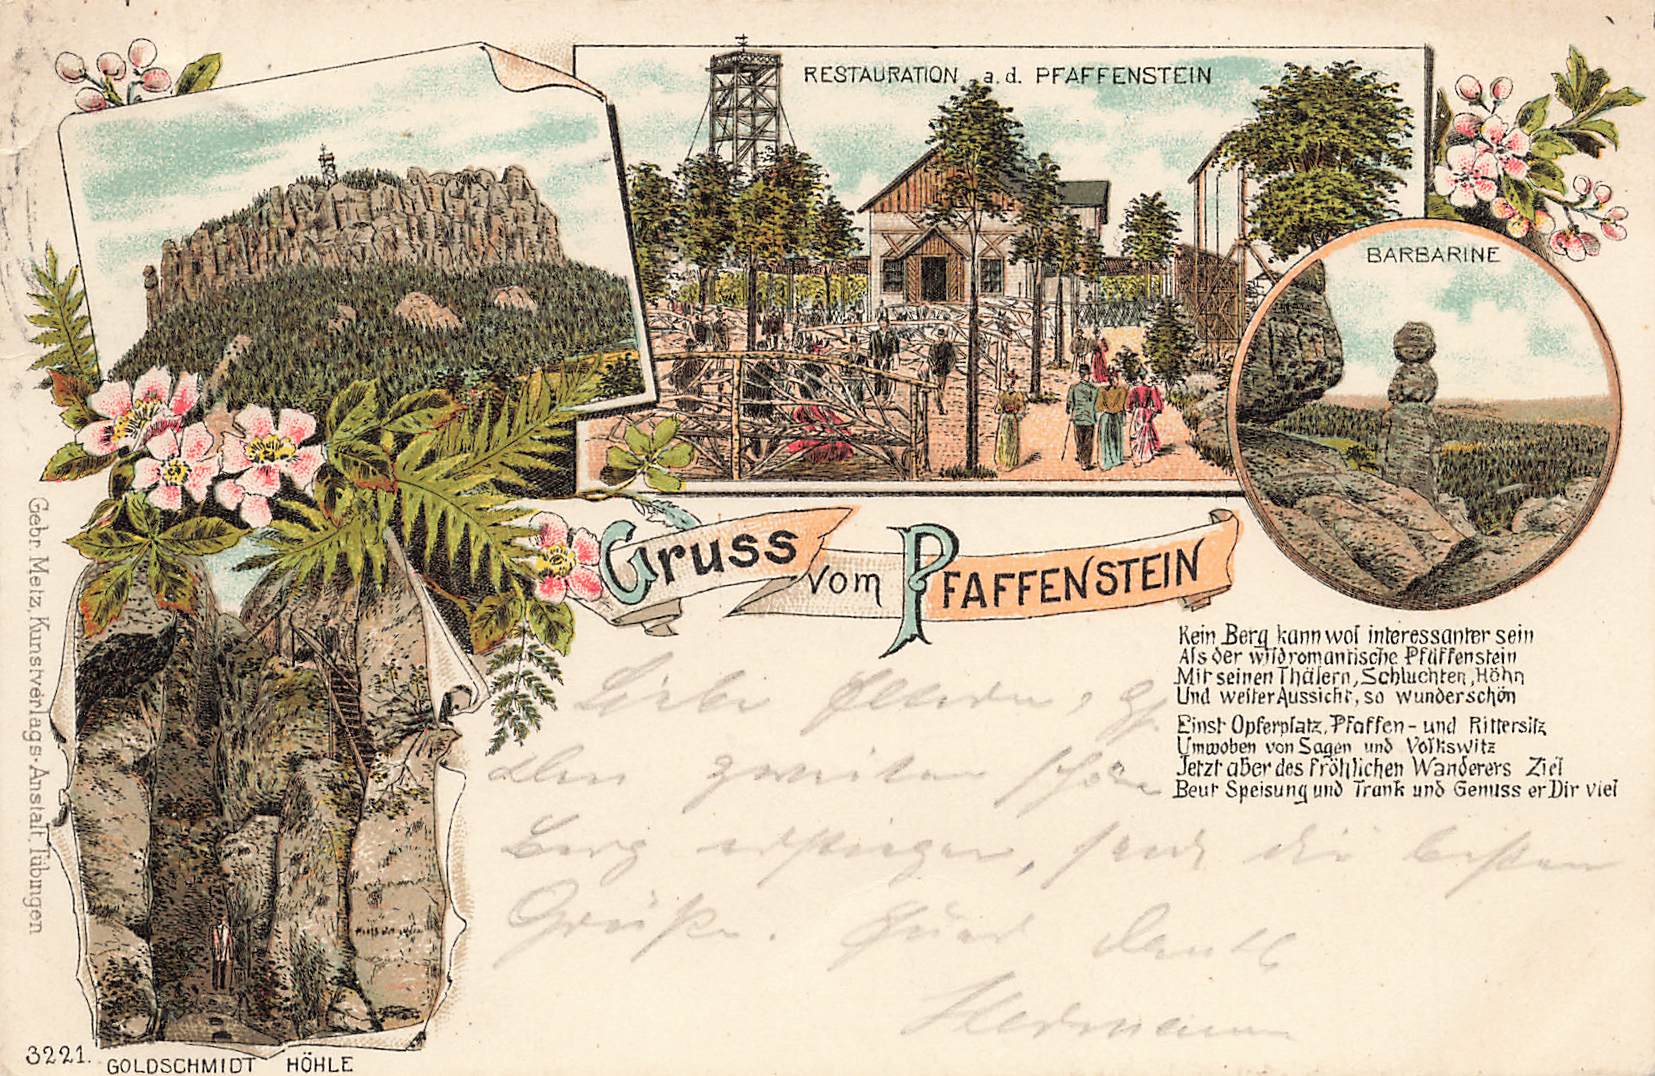 RESTAURATION a.d. PFAFFENSTEIN
BARBARINE
Gruss vom PFAFFENSTEIN
Kein Berg kann wol interessanter sein
Als der wildromantische Pfaffenstein
Mit seinen Thälern, Schluchten, Höhn
Und weiter Aussicht, so wunderschön
Einst Opferplatz, Pfaffen- und Rittersitz
Umwoben von Sagen und Volkswitz
Jetzt aber des fröhlichen Wanderers Ziel
Beut Speisung und Trank und Genuss er Dir viel
Liebe
den zweiten
Berg erstiegen, send die besten
Grüße.
Hermann
Gebr. Metz, Kunstverlags-Anstalt, Tübingen
3221.
GOLDSCHMIDT HÖHLE